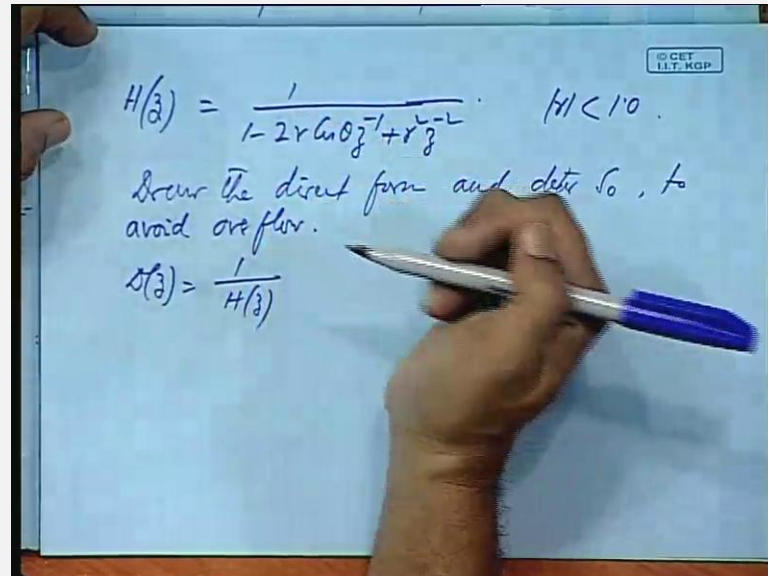 © CET
I.I.T. KGP
H(z) = 1 / (1 - 2r Cosθ z⁻¹ + r² z⁻²) . |r| < 1.0 .
Draw the direct form and deter S₀, to
avoid overflow.
D(z) = 1 / H(z)